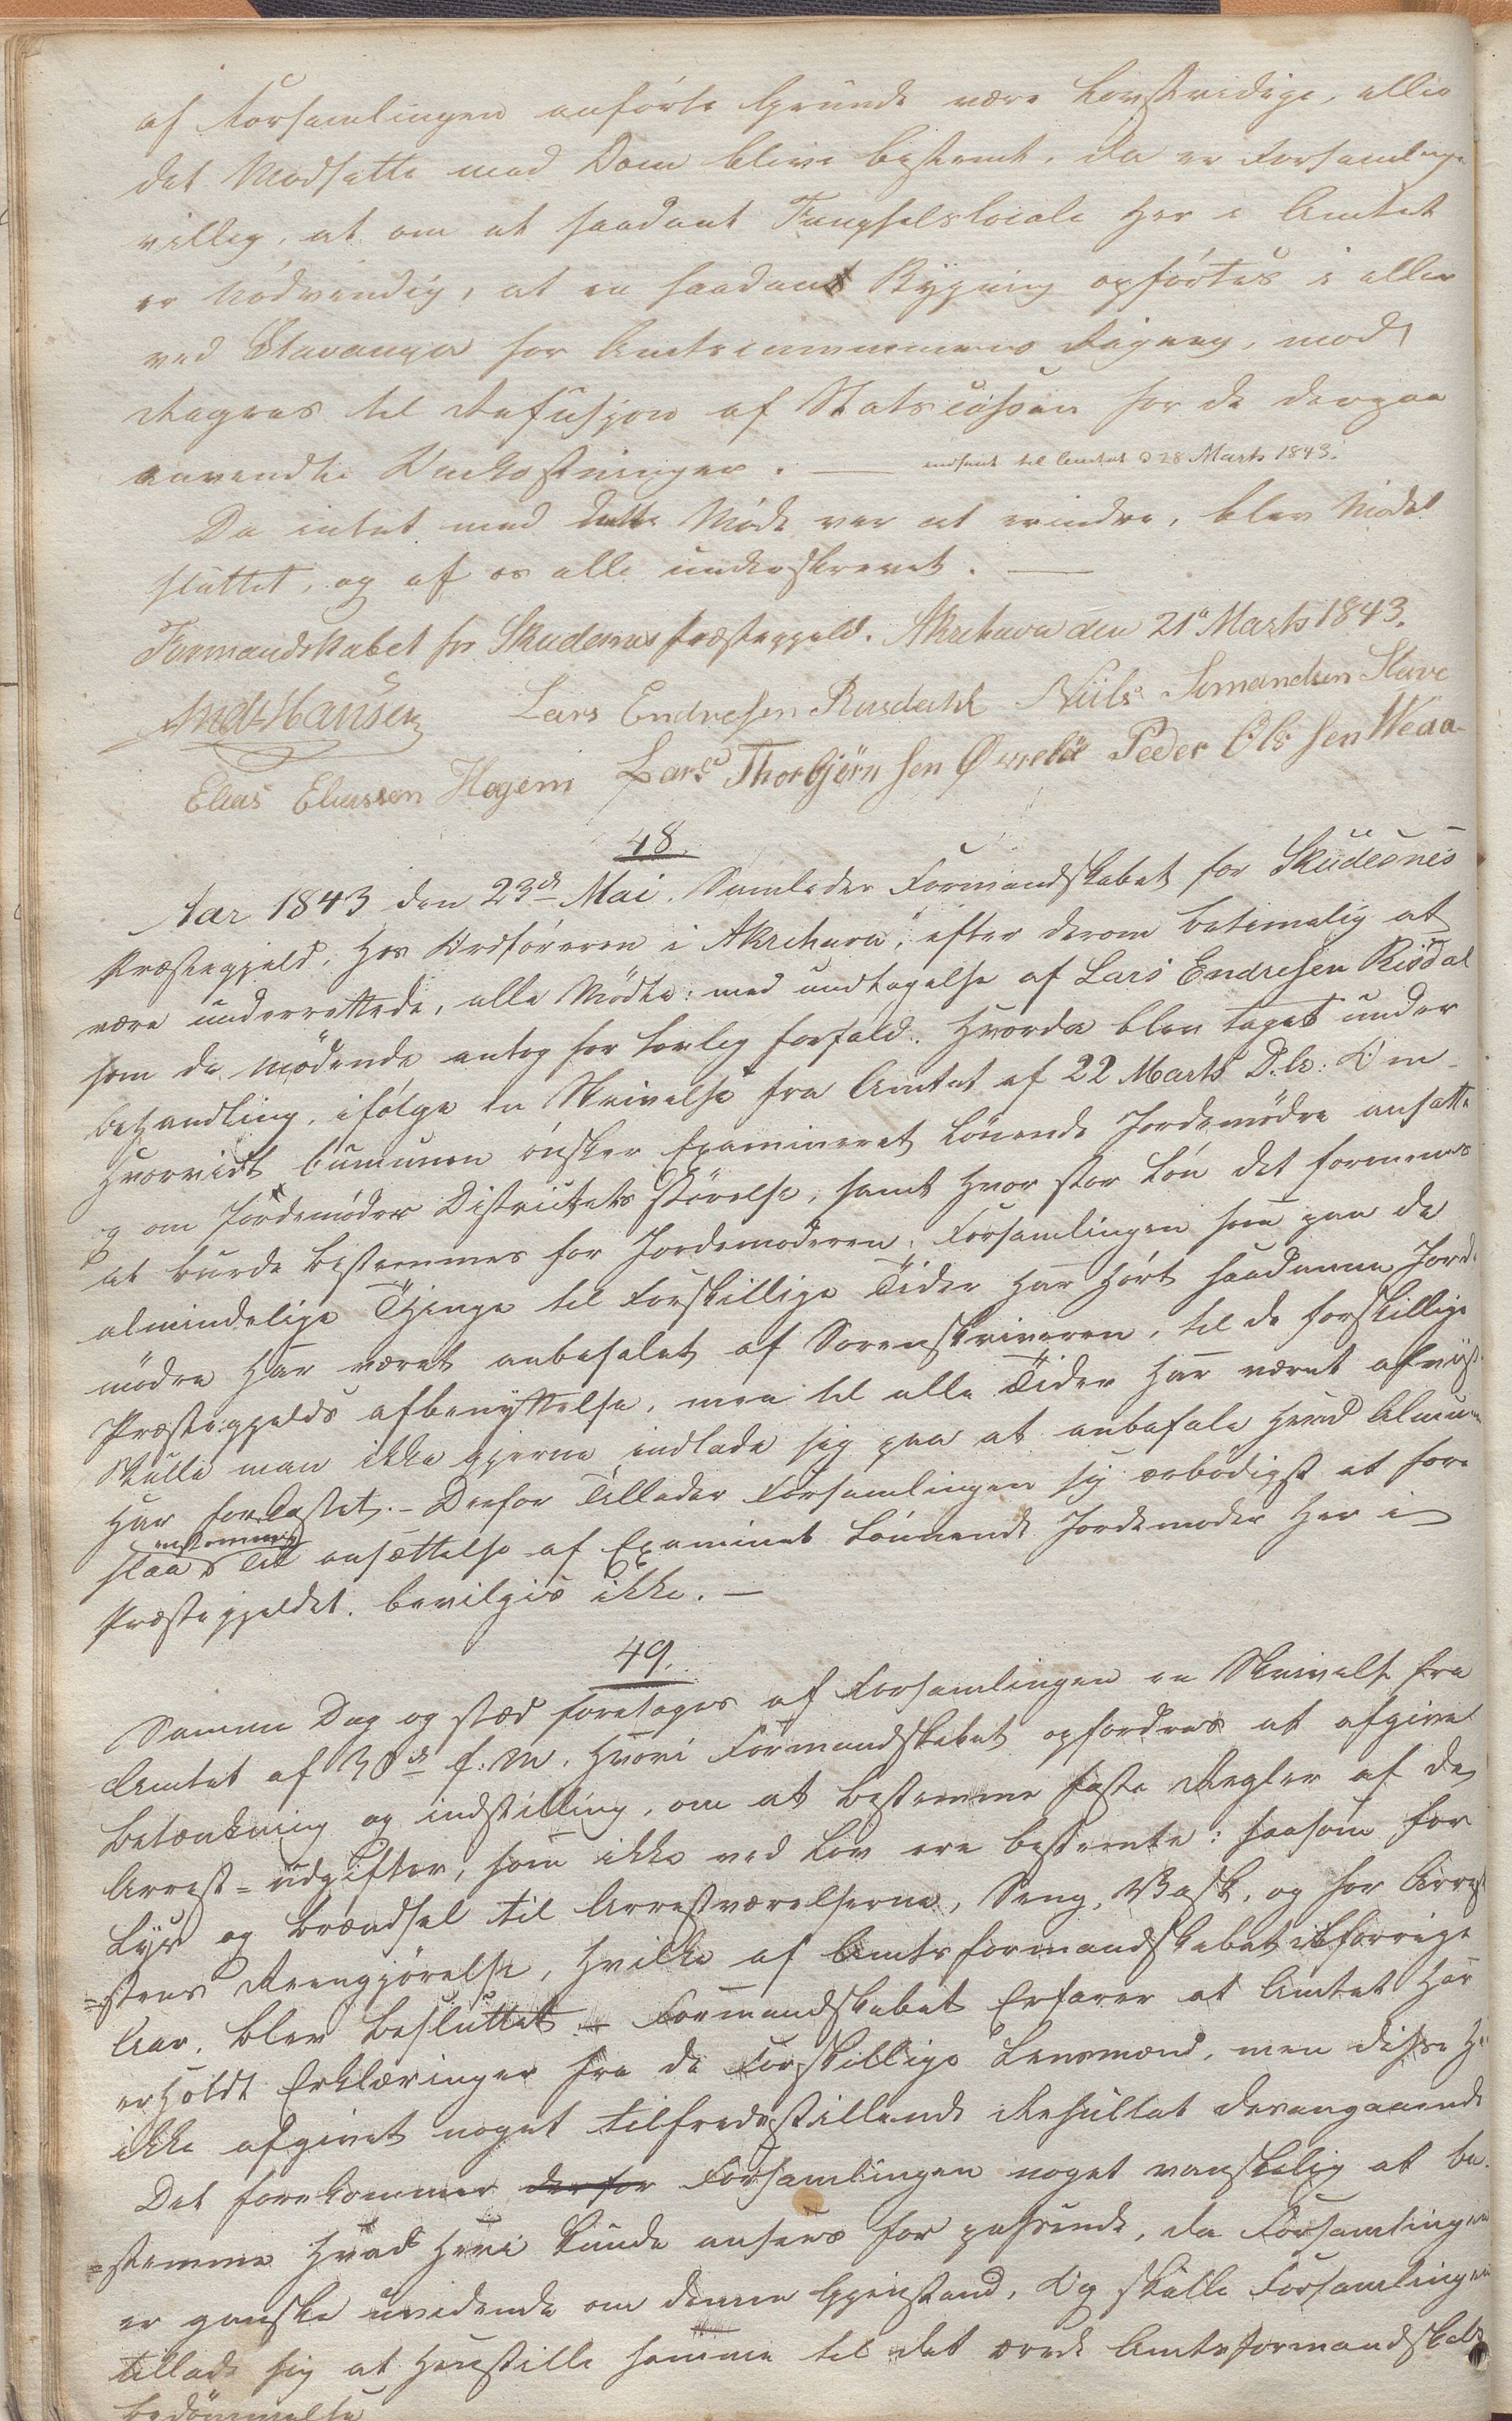 af Forsamlingen anførte Grunde være Lovstridige, eller
det Modsatte med Dom blive bestemt, da er Forsamlingen
villig, at om et saadant Fængselslocale her i Amtet
er nødvendig, at en saadant Bygning opførtes i eller
ved Stavanger for Amtscommunens Regning, mod
Regres til Refusjon af Statscassen for de derpaa
anvendte Bekostninger. — indsent til Amtet d 28 Marts 1843.
Da intet med dette Møde var at erindre, blev Mødet
sluttet, og af os alle underskrevet. —
Formandskabet for Skudenes Præstegjeld. Akrehavn den 21de Marts 1843.
Andr Hansen Lars Endresen Risdahl Niels Simondsen Stave
Elias Eliassen Hagem Lars Thorbjørnsen Øvrebø Peder Olssen Weaa
48.
Aar 1843 den 23de Mai. Samledes Formandskabet for Skudesnes
Præstegjeld, hos Ordføreren i Akrehavn, efter derom betimelig at
være underrettede, alle Mødte: med undtagelse af Lars Endresen Risdal
som de mødende antog for lovlig forfald. Hvorda blev taget under
behandling, ifølge en Skrivelse fra Amtet af 22 Marts D.A: Om
hvorvidt Cumunen ønsker Examineret Lønnende Jordemødre ansatte
og om Jordemøder Districtets størelse, samt hvor stor Løn det formenes
at burde bestemmes for Jordemoderen; Forsamlingen som paa de
almindelige Thinge til Forskillige Tider har hørt saadanne Jorde
mødre har været anbefalet af Sorenskriveren, til de forskillige
Præstegjelds afbenyttelse, men til alle Tider har været afviist
skulle man ikke gjerne indlade sig paa at anbefale hvad Almuen
har forkastet. – Derfor Tillader Forsamlingen sig ærbødigst at fore
slaa stemning til ansættelse af Examinet Lønnende Jordemoder her i
Præstegjeldet. bevilges ikke. —
49.
Samme Dag og stæd foretoges af Forsamlingen en Skrivelse fra
Amtet af 30de f. M. hvori Formandskabet opfordres at afgive
betænkning og indstilling, om at bestemme faste Regler af de
Arrest=udgifter, som ikke ved Lov ere bestemte: saasom for
Lys og Brændsel til Arrestværelserne, Seng, Vask, og for Arre
=stens Reengjørelse, hvilke af Amtsformandskabet i forrige
Aar, blev besluttet – Formandskabet Erfarer at Amtet har
erholdt Erklæringer fra de Forskillige Lensmænd, men disse har
ikke afgivet noget tilfredsstillende Resultat derangaaende
Det forekommer derfor Forsamlingen noget vanskelig at be
=stemme hvad heri kunde ansees for passende, da Forsamlingen
er ganske uvidende om denne Gjenstand, Og skulle Forsamlingen
tillade sig at henstille samme til det ærede Amtsformandskabs
bedømmelse